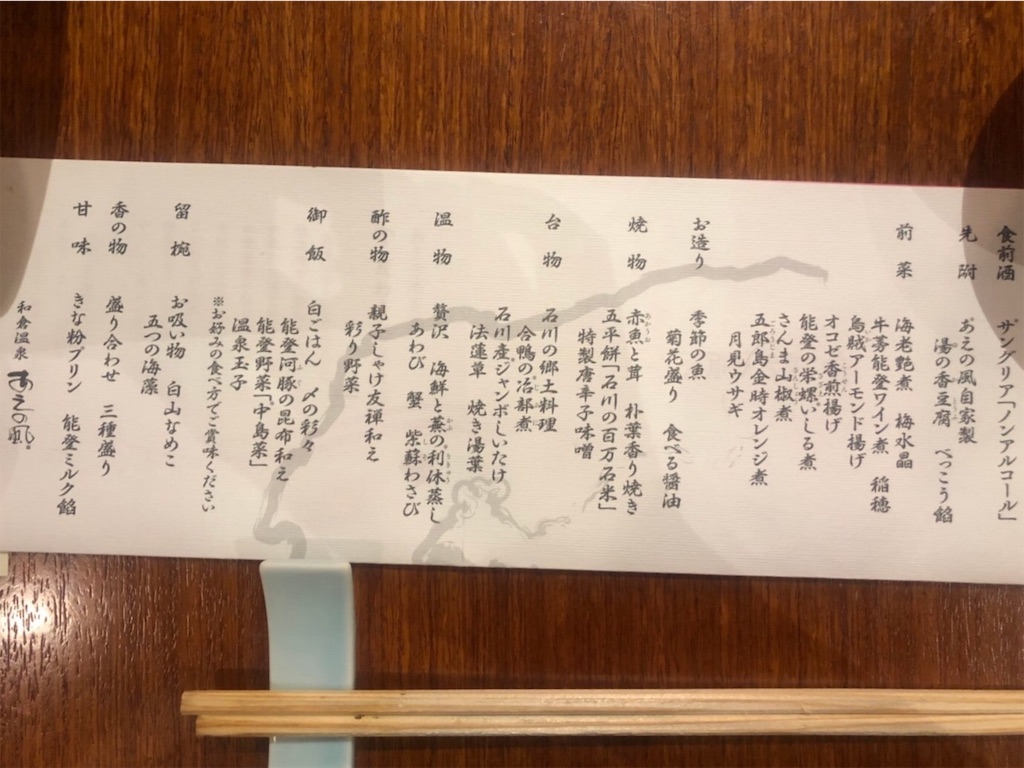 食前酒　サングリア「ノンアルコール」
先附　あえの風自家製
湯の香豆腐　べっこう餡
前菜　海老艶煮　梅水晶
牛蒡能登ワイン煮　稲穂
烏賊アーモンド揚げ
オコゼ香煎揚げ
能登の栄螺いしる煮
さんま山椒煮
五郎島金時オレンジ煮
月見ウサギ
お造り　季節の魚
菊花盛り　食べる醤油
焼物　赤魚と茸　朴葉香り焼き
五平餅「石川の百万石米」
特製唐辛子味噌
台物　石川の郷土料理
合鴨の冶部煮
石川産ジャンボしいたけ
法蓮草　焼き湯葉
温物　贅沢　海鮮と蕪の利休蒸し
あわび　蟹　紫蘇わさび
酢の物　親子しゃけ友禅和え
彩り野菜
御飯　白ごはん　〆の彩々
能登河豚の昆布和え
能登野菜「中島菜」
温泉玉子
※お好みの食べ方でご賞味ください
留椀　お吸い物　白山なめこ
五つの海藻
香の物　盛り合わせ　三種盛り
甘味　きな粉プリン　能登ミルク餡
和倉温泉　あえの風